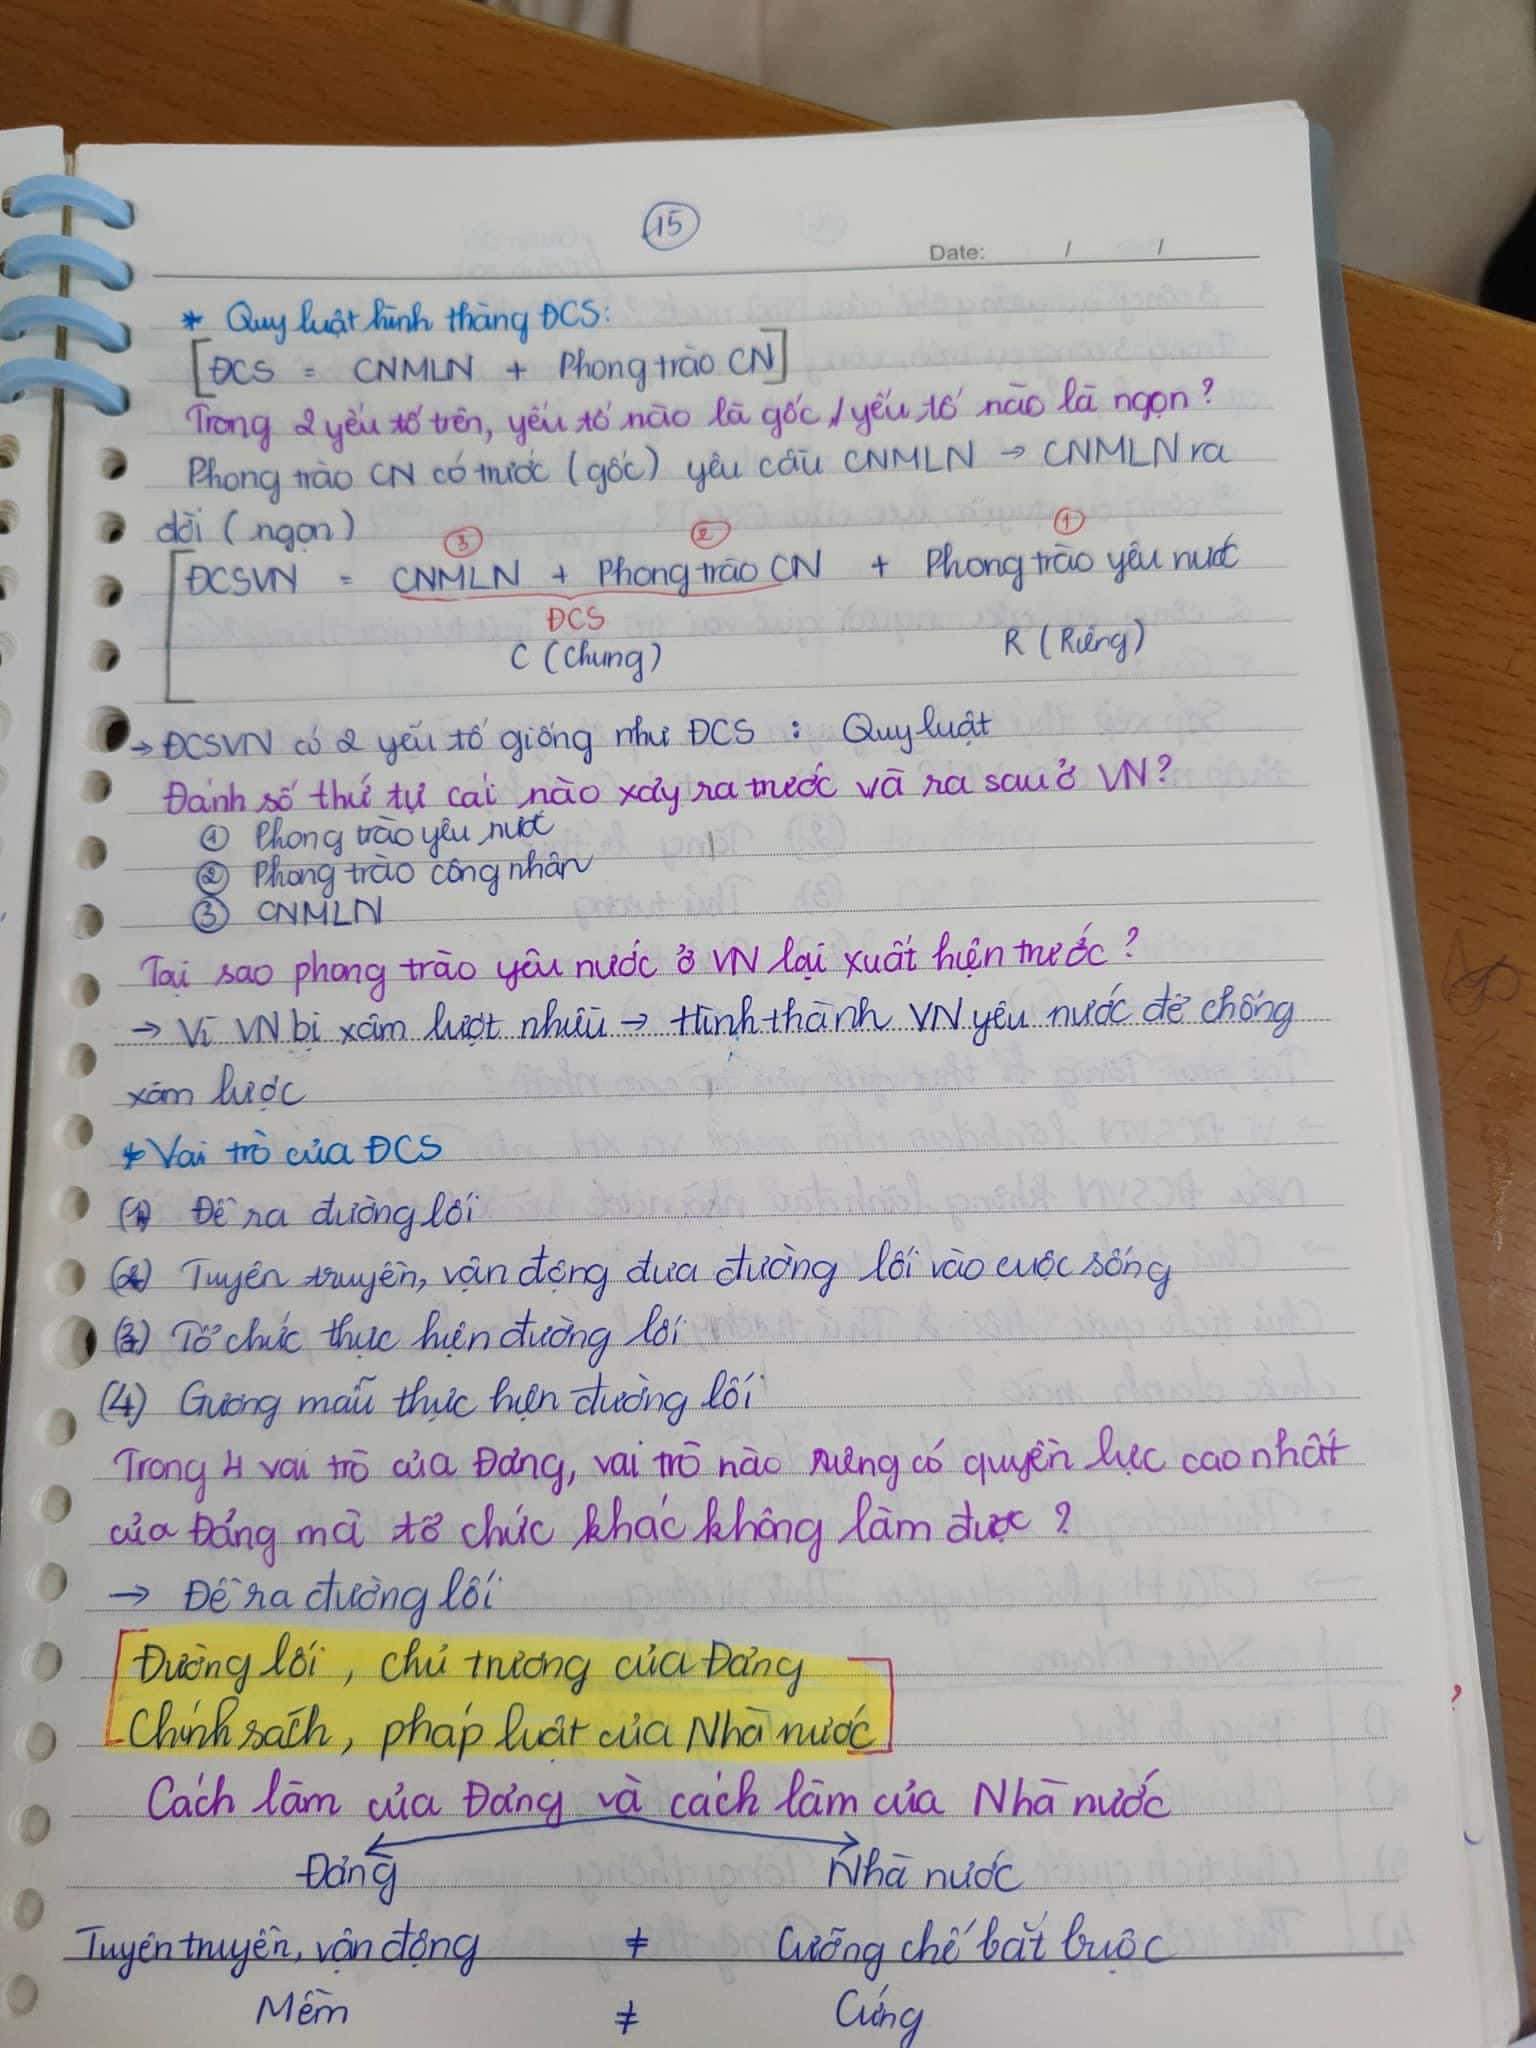 15
Date: / /
* Quy luật hình thàng ĐCS:
[ĐCS = CNMLN + Phong trào CN]
Trong 2 yếu tố trên, yếu tố nào là gốc, yếu tố nào là ngọn?
Phong trào CN có trước (gốc) yêu cầu CNMLN → CNMLN ra
đời (ngọn)
③ ② ①
ĐCSVN = CNMLN + Phong trào CN + Phong trào yêu nước
ĐCS
C (Chung) R (Riêng)
→ ĐCSVN có 2 yếu tố giống như ĐCS : Quy luật
Đánh số thứ tự cái nào xảy ra trước và ra sau ở VN?
① Phong trào yêu nước
② Phong trào công nhân
③ CNMLN
Tại sao phong trào yêu nước ở VN lại xuất hiện trước?
→ Vì VN bị xâm lượt nhiều → Hình thành VN yêu nước để chống
xâm lược
* Vai trò của ĐCS
(1) Đề ra đường lối
(2) Tuyên truyền, vận động đưa đường lối vào cuộc sống
(3) Tổ chức thực hiện đường lối
(4) Gương mẫu thực hiện đường lối
Trong 4 vai trò của Đảng, vai trò nào riêng có quyền lực cao nhất
của Đảng mà tổ chức khác không làm được?
→ Đề ra đường lối
Đường lối, chủ trương của Đảng
Chính sách, pháp luật của Nhà nước
Cách làm của Đảng và cách làm của Nhà nước
Đảng Nhà nước
Tuyên truyền, vận động ≠ Cưỡng chế bắt buộc
Mềm ≠ Cứng